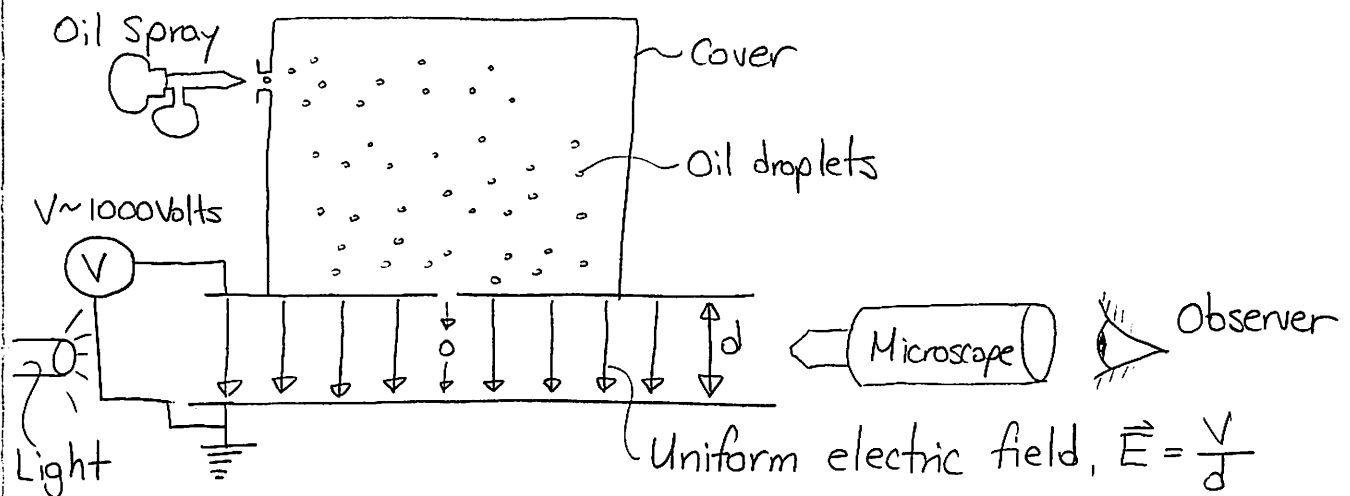 Oil Spray
Cover
Oil droplets
V~1000Volts
V
d
Microscope
Observer
Light
Uniform electric field, E⃗ = V/d